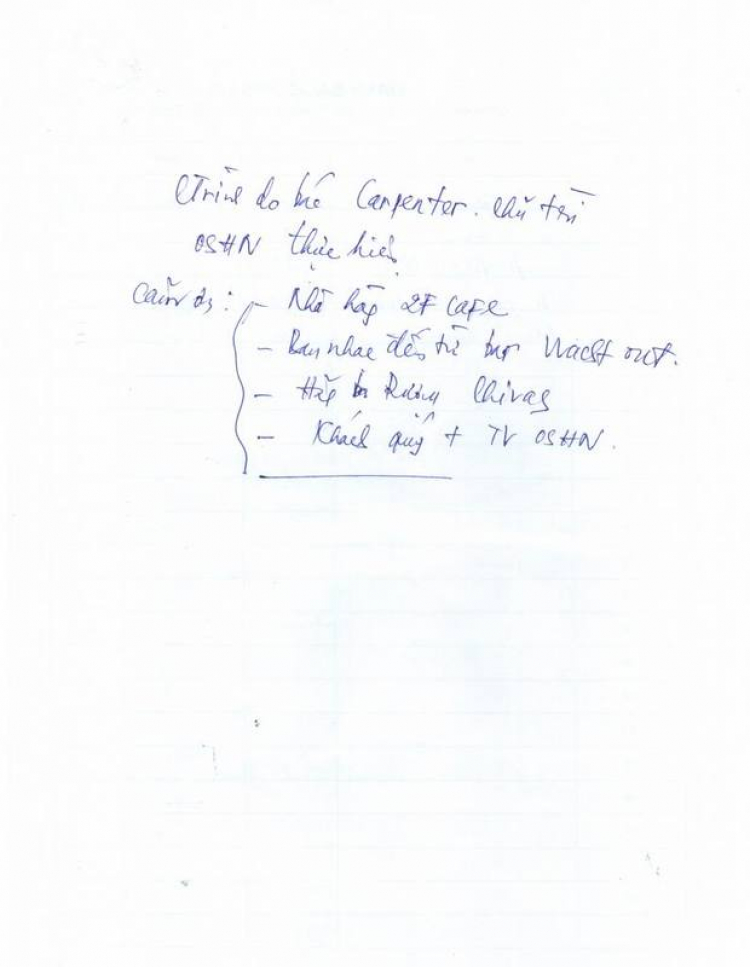 CTrình do bác Carpenter. chủ trì
OSHN thực hiện
Cảm ơn: - Nhà hàng 2F Cafe
- Ban nhạc đến từ bar
- Hãng Rượu Chivas
- Khách quý + TV OSHN.